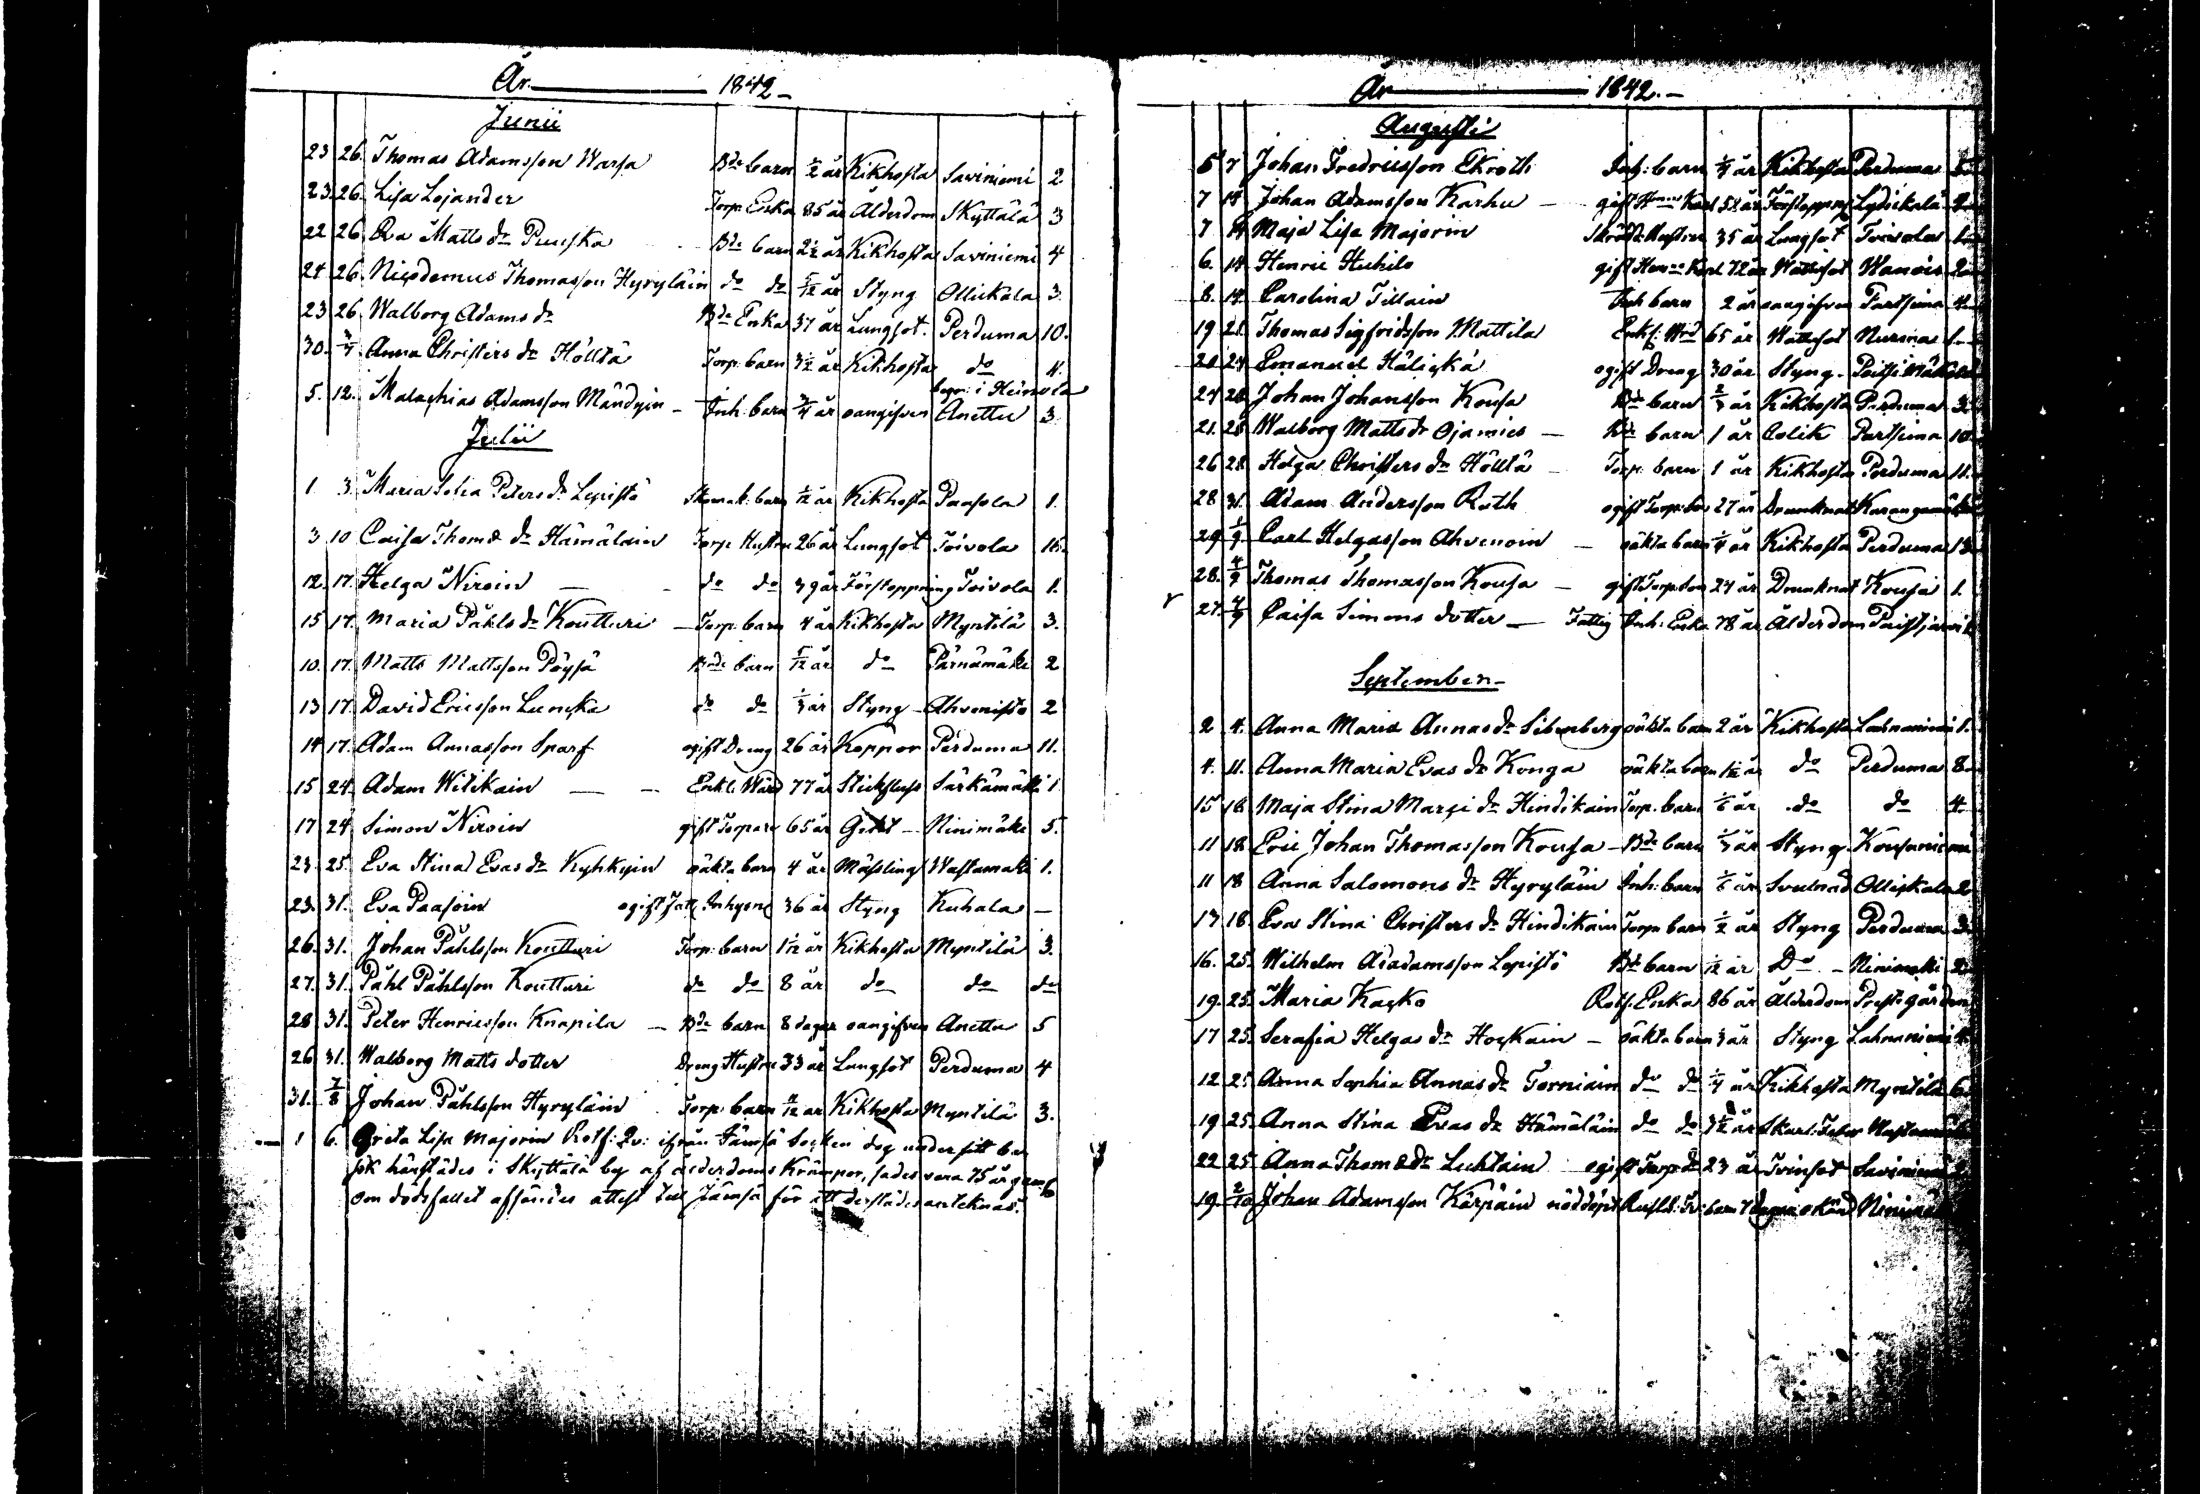 År 1842
Junii
23 26. Thomas Adamsson Warsa Bde barn 1/2 år Kikhosta Saviniemi 2
23. 26. Lisa Lojander Torp: Enka 85 år Ålderdom Skyttälä 3
22 26 Eva Matts dr Puuska Bde barn 2 1/2 år Kikhosta Saviniemi 4
24 26. Nicodemus Thomasson Hyryläin do do 5/12 år Styng Ollikala 3.
23 26 Walborg Adams dr Bde Enka 37 år Lungsot. Perduma 10.
30. 3/7 Anna Christers dr Hölltä Torp: barn 3 1/2 år Kikhosta do 11.
begr: i Heinola
5. 12. Malachias Adamsson Mändyin Inh. barn 3/4 år oangifven Anettu 3
Julii
1 3. Maria Sofia Peters dr Lepistö Skomak. barn 1/12 år Kikhosta Paasola 1.
3 10 Caisa Thomæ dr Hämäläin Torp. Hustru 26 år Lungsot Toivola 16.
12. 17. Helga Niroin do do 39 år Förstoppning Toivola 1.
15 17. Maria Påhls dr Koutturi Torp: barn 4 år Kikhosta Myntilä 3.
10. 17. Matts Mattsson Pöysä Bde barn 5/12 år do Pärnämäki 2
13 17. David Ericsson Luncka do do 1/3 år Styng Ahvenisto 2
14 17. Adam Annasson Sparf ogift Dreng 26 år Koppor Perduma 11.
15 24. Adam Witikain Enkl. Wärd 77 år Stickfluss Särkämäki 1
17 24 Simon Niroin gift Torpare 65 år Gikt Niinimäki 5.
23. 25. Eva Stina Evas dr Kyhkyin oäkta barn 4 år Mässling Wastamäki 1.
23. 31. Eva Paasoin ogift Fatt. Inhyses 36 år Styng Kuhala
26. 31. Johan Påhlsson Koutturi Torp: barn 1 1/12 år Kikhosta Myntilä 3.
27. 31. Påhl Påhlsson Koutturi do do 8 år do do do
28 31. Peter Henricsson Knapila Bde barn 8 dagar oangifven Anettu 5
26 31. Walborg Matts dotter Dreng Hustru 33 år Lungsot Perduma 4
31. 7/8 Johan Påhlsson Hyryläin Torp: barn 4/12 år Kikhosta Myntilä 3.
1 6. Greta Lisa Majorin Rotf: Qv: ifrån Jämsä Socken dog under sitt be
sök härstädes i Skyttälä by af ålderdoms Krämpor, sades vara 75 år gam
om dödsfallet afsändes attest till Jämsä för att derstädes antecknas.
År 1842.
Augusti
5 7 Johan Fredricsson Ekroth Inh: barn 1/4 år Kikhosta Perduma
7 14 Johan Adamsson Karhu gift Karl 52 år Förstoppning Lydikälä 2
7 14 Maja Lisa Majorin Hustru 35 år Lungsot Toivola 1
6. 14 Henric Huhilo gift Karl 72 år Wattusot
8. 14. Carolina Tillain Inh barn 2 år oangifven Partsima 4.
19 21. Thomas Sigfridsson Mattila Enkl: Wrd 65 år Wattusot Nurmaa 1
20 24 Emanuel Häliskä ogift Dreng 30 år Styng
24 28 Johan Johansson Kousa Bde barn 2/3 år Kikhosta Perduma 3.
21. 28 Walborg Matts dr Ojamies Bde barn 1 år Colik Partsima 10
26 28 Helga Christers dr Hölltä Torp. barn 1 år Kikhosta Perduma 11.
28 31. Adam Andersson Roth ogift Torp: 27 år Drunknat
29 1/9 Carl Helgasson Ahvenoin oäkta barn 1/4 år Kikhosta Perduma 13
28. 4/9 Thomas Thomasson Kousa gift Torp: Son 24 år Drunknat Kousa 1.
27. 4/9 Caisa Simons dotter Fattig Inh: Enka 78 år Ålderdom Paistjärvi
September
2 4. Anna Maria Annas dr Sibenberg oäkta barn 2 år Kikhosta Lahnaniemi 1.
4. 11. Anna Maria Evas dr Konga oäkta barn 1 1/2 år do Perduma 8
15 18 Maja Stina Marci dr Hindikain Torp. barn 1/6 år do do 4
11 18 Eric Johan Thomasson Kousa Bde barn 1/3 år Styng Kousaniemi
11 18 Anna Salomons dr Hyryläin Inh: barn 1/6 år Svulnad Ollikala 2
17 18 Eva Stina Christers dr Hindikain Torp barn 1/2 år Styng Perduma 3
16. 25. Wilhelm Adamsson Lepistö Bde barn 1/12 år Do Niinimäki 2
19. 25. Maria Kasko Rotf. Enka 86 år Ålderdom Prestgården
17 25. Serafia Helgas dr Hockain oäkta barn 3 år Styng Lahnaniemi 4
12 25 Anna Sophia Annas dr Torniain do do 1/4 år Kikhosta Myntilä 6
19 25. Anna Stina Evas dr Hämäläin do do 3 1/2 år Skarl. Feber
22 25 Anna Thomæ dr Luhtain ogift Torp: dr 23 år Tvinsot Saviniemi
19. 2/10 Johan Adamsson Kärpäin nöddöpt barn 7 dagar okänd